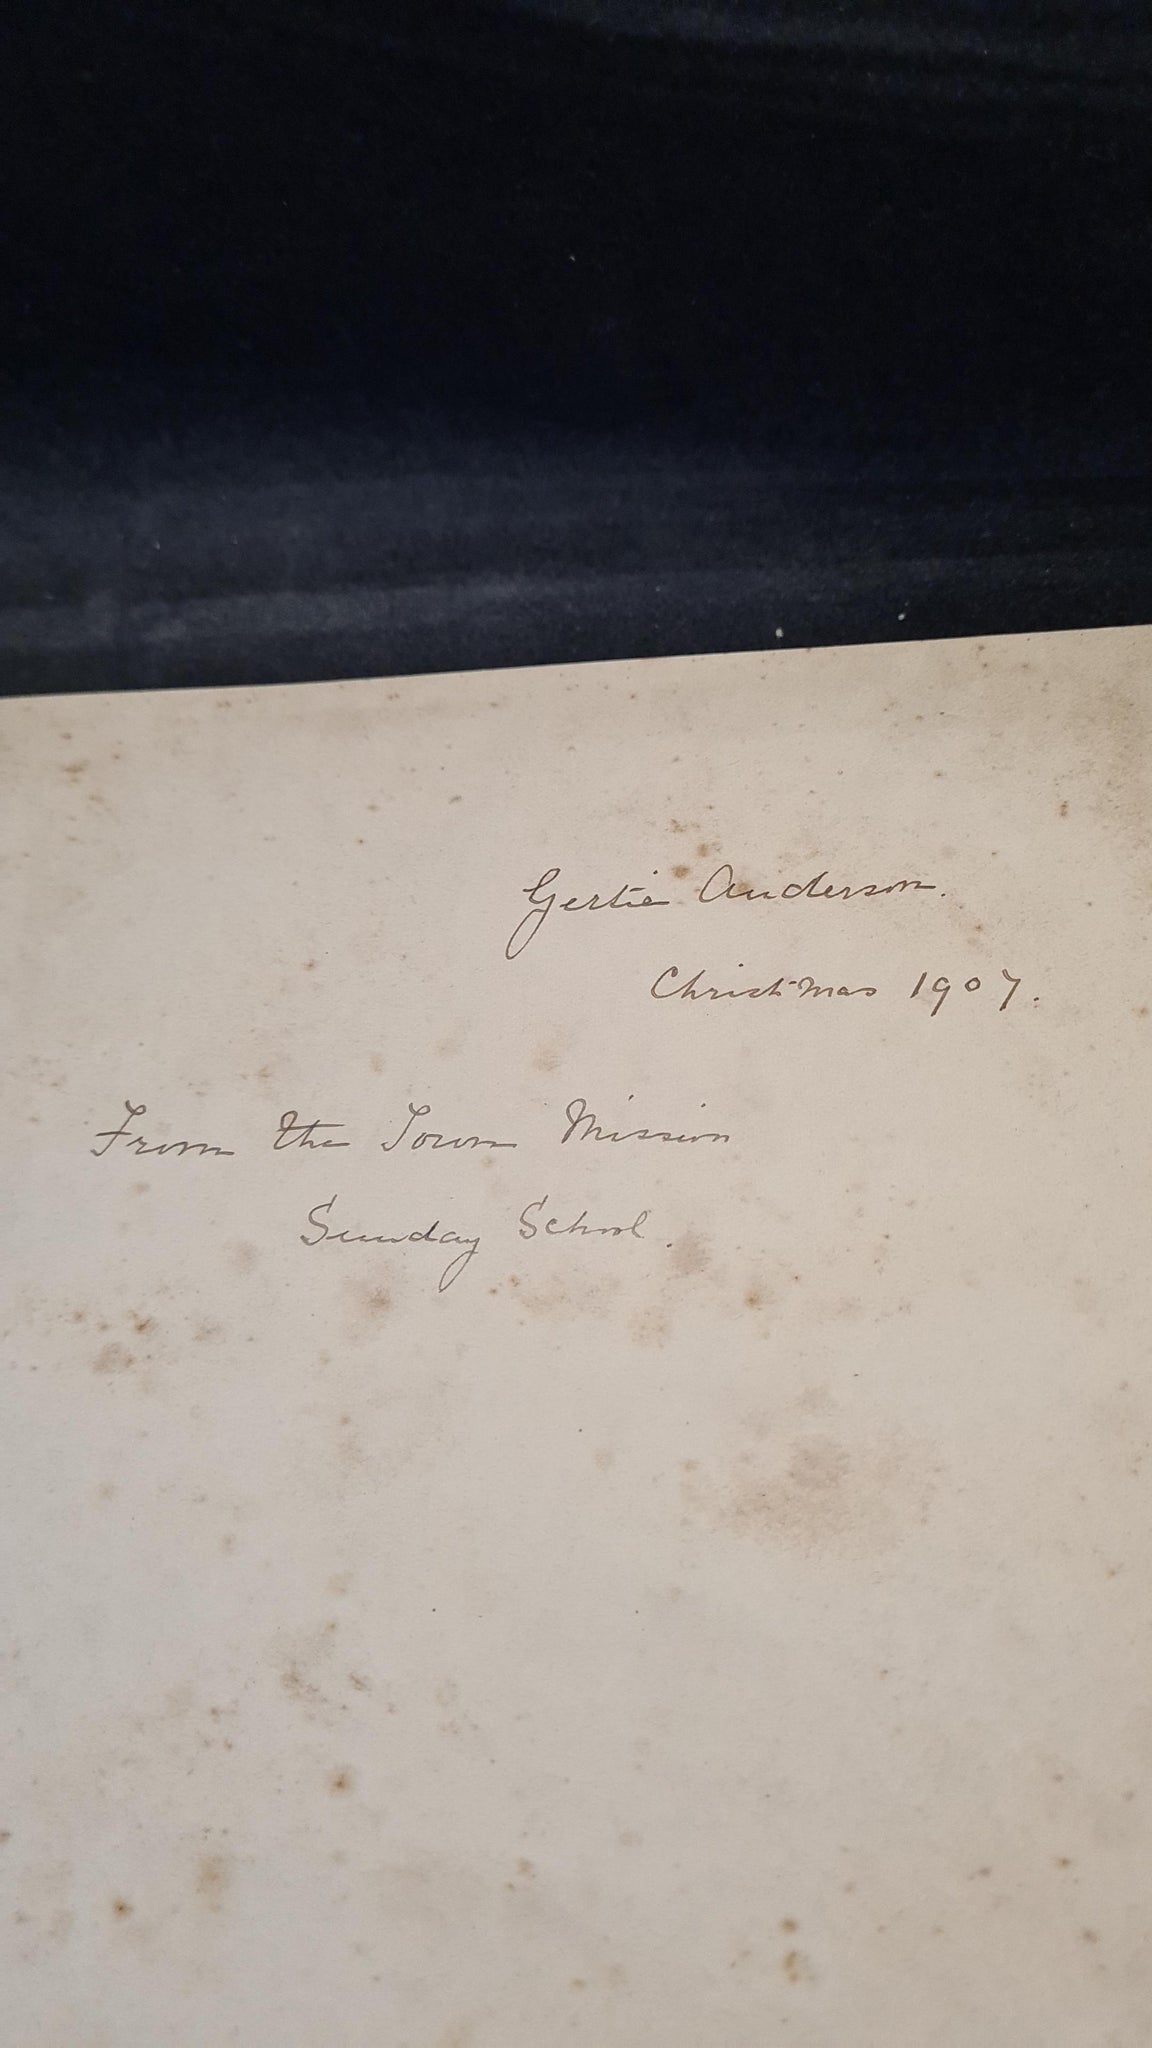 Gertie Anderson.
Christmas 1907.
From the Town Mission
Sunday School.